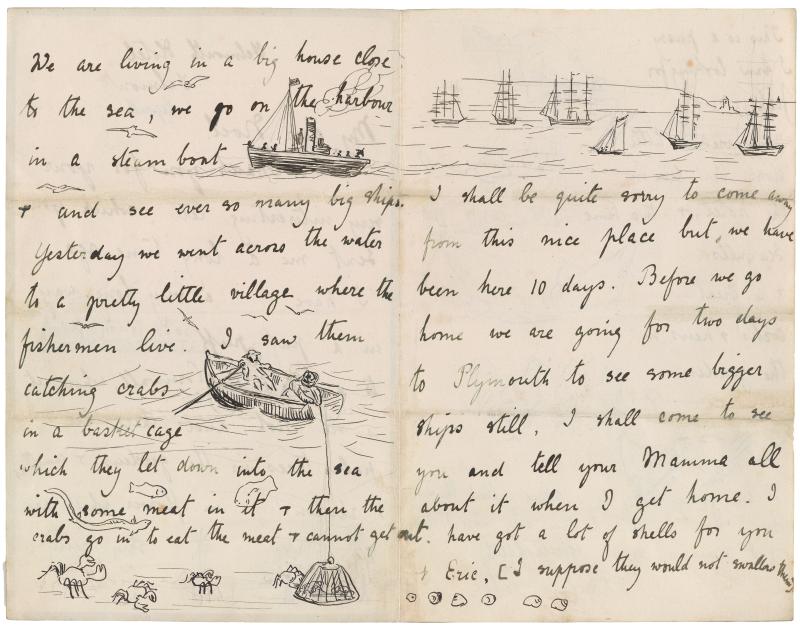 We are living in a big house close
to the sea, we go on the harbour
in a steam boat
+ and see ever so many big ships.
Yesterday we went across the water
to a pretty little village where the
fishermen live. I saw them
catching crabs
in a basket cage
which they let down into the sea
with some meat in it + then the
crabs go in to eat the meat + cannot get out.
I shall be quite sorry to come away
from this nice place but, we have
been here 10 days. Before we go
home we are going for two days
to Plymouth to see some bigger
ships still. I shall come to see
you and tell your Mamma all
about it when I get home. I
have got a lot of shells for you
+ Eric, [I suppose they would not swallow them]